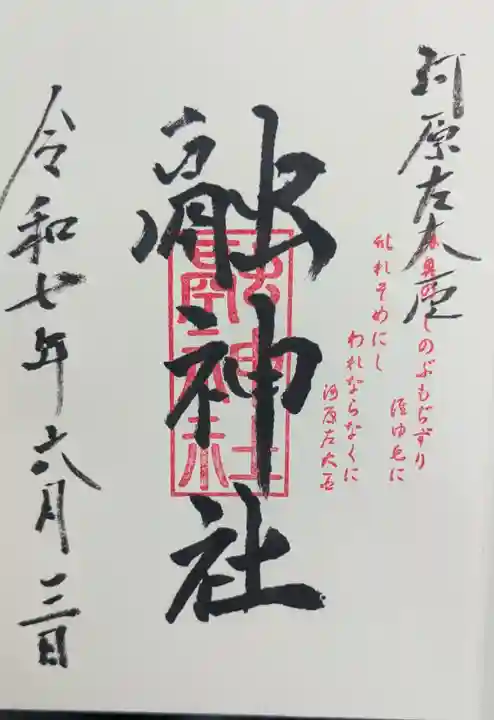 河原左大臣
陸奥のしのぶもぢずり
誰ゆゑに
乱れそめにし
われならなくに
河原左大臣
融神社
令和七年六月三日